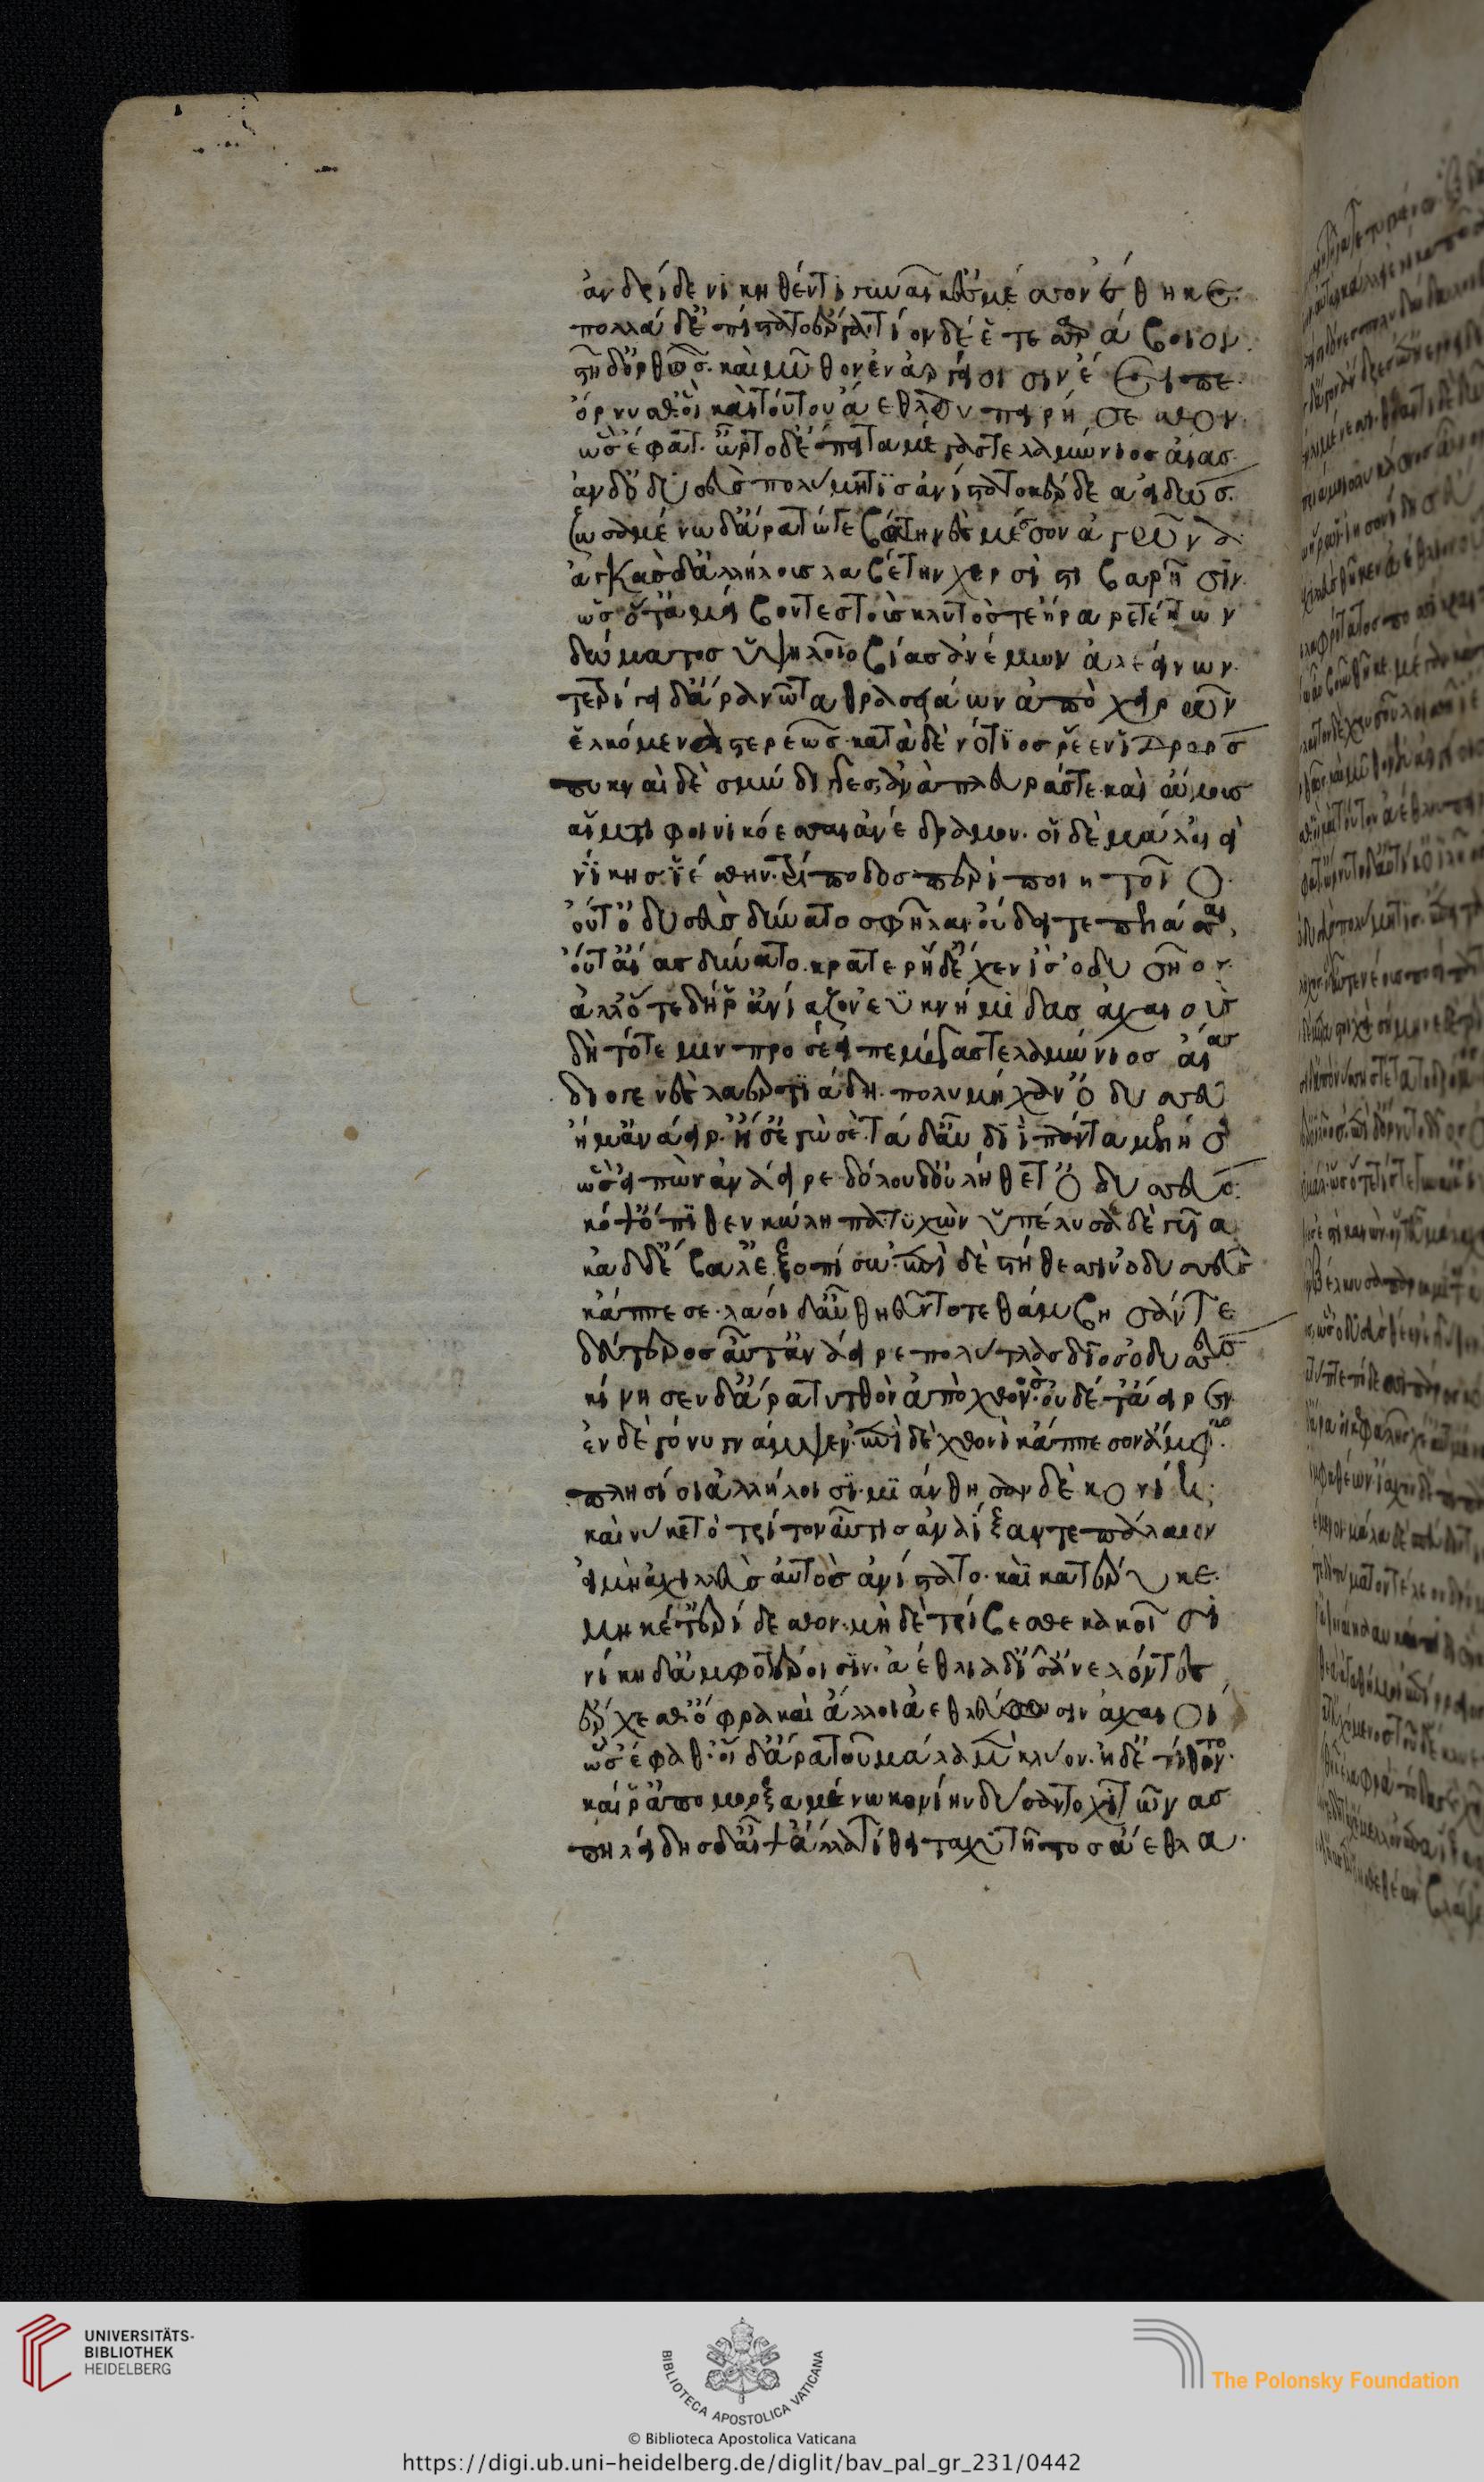 ἀνδρὶ δὲ νικηθέντι γυναῖκ' ἐς μέσσον ἔθηκε.
πολλὰ δ' ἐπίστατο ἔργα, τίον δέ ἑ τεσσαράβοιον.
στῆ δ' ὀρθὸς καὶ μῦθον ἐν ἀργείοισιν ἔειπε.
ὄρνυσθ' οἳ καὶ τούτου ἀέθλου πειρήσεσθον.
ὣς ἔφατ'. ὦρτο δ' ἔπειτα μέγας τελαμώνιος αἴας.
ἂν δ' ὀδυσεὺς πολύμητις ἀνίστατο κέρδεα εἰδώς.
ζωσαμένω δ' ἄρα τώ γε βάτην ἐς μέσσον ἀγῶνα.
ἀγκὰς δ' ἀλλήλους λαβέτην χερσὶ στιβαρῇσιν.
ὡς ὅτ' ἀμείβοντες τούς τε κλυτὸς ἤραρε τέκτων
δώματος ὑψηλοῖο βίας ἀνέμων ἀλεείνων.
τετρίγει δ' ἄρα νῶτα θρασειάων ἀπὸ χειρῶν
ἑλκόμενα στερεῶς. κατὰ δὲ νότιος ῥέεν ἱδρώς
πυκναὶ δὲ σμώδιγγες ἀνὰ πλευράς τε καὶ ὤμους
αἵματι φοινικόεσσαι ἀνέδραμον. οἳ δὲ μάλ' αἰεὶ
νίκης ἱέσθην τρίποδος πέρι ποιητοῖο.
οὔτ' ὀδυσεὺς δύνατο σφῆλαι οὔδει τε πελάσσαι,
οὔτ' αἴας δύνατο. κρατερὴ δ' ἔχεν ἲς ὀδυσῆος.
ἀλλ' ὅτε δή ῥ' ἀνίαζον ἐϋκνήμιδας ἀχαιούς
δὴ τότε μιν προσέειπε μέγας τελαμώνιος αἴας
διογενὲς λαερτιάδη πολυμήχαν' ὀδυσσεῦ
ἤ μ' ἀνάειρ' ἢ ἐγὼ σέ. τὰ δ' αὖ διῒ πάντα μελήσει
ὣς εἰπὼν ἀνάειρε. δόλου δ' οὐ λήθετ' ὀδυσσεύς.
κόψ' ὄπιθεν κώληπα τυχὼν ὑπέλυσε δὲ γυῖα
κὰδ δ' ἔβαλ' ἐξοπίσω. ἐπὶ δὲ στήθεσσιν ὀδυσσεὺς
κάππεσε. λαοὶ δ' αὖ θηεῦντό τε θάμβησάν τε
δεύτερος αὖτ' ἀνάειρε πολύτλας δῖος ὀδυσσεύς
κίνησεν δ' ἄρα τυτθὸν ἀπὸ χθονὸς οὐδέ τ' ἄειρεν
ἐν δὲ γόνυ γνάμψεν. ἐπὶ δὲ χθονὶ κάππεσον ἄμφω.
πλησίοι ἀλλήλοισι. μιάνθησαν δὲ κονίῃ.
καί νύ κε τὸ τρίτον αὖτις ἀναΐξαντε πάλαιον
εἰ μὴ ἀχιλλεὺς αὐτὸς ἀνίστατο. καὶ κατέρυκε.
μηκέτ' ἐρίδεσθον. μὴ δὲ τρίβεσθε κακοῖσι
νίκη δ' ἀμφοτέροισιν. ἀέθλια δ' ἶσ' ἀνελόντες
ἔρχεσθ' ὄφρα καὶ ἄλλοι ἀεθλεύωσιν ἀχαιοί
ὣς ἔφαθ' οἳ δ' ἄρα τοῦ μάλα μὲν κλύον. ἠδ' ἐπίθοντο.
καί ῥ' ἀπομορξαμένω κονίην δύσαντο χιτῶνας
πηλείδης δ' αἶψ' ἄλλα τίθει ταχυτῆτος ἄεθλα.
UNIVERSITÄTS-
BIBLIOTHEK
HEIDELBERG
BIBLIOTECA APOSTOLICA VATICANA
The Polonsky Foundation
© Biblioteca Apostolica Vaticana
https://digi.ub.uni-heidelberg.de/diglit/bav_pal_gr_231/0442